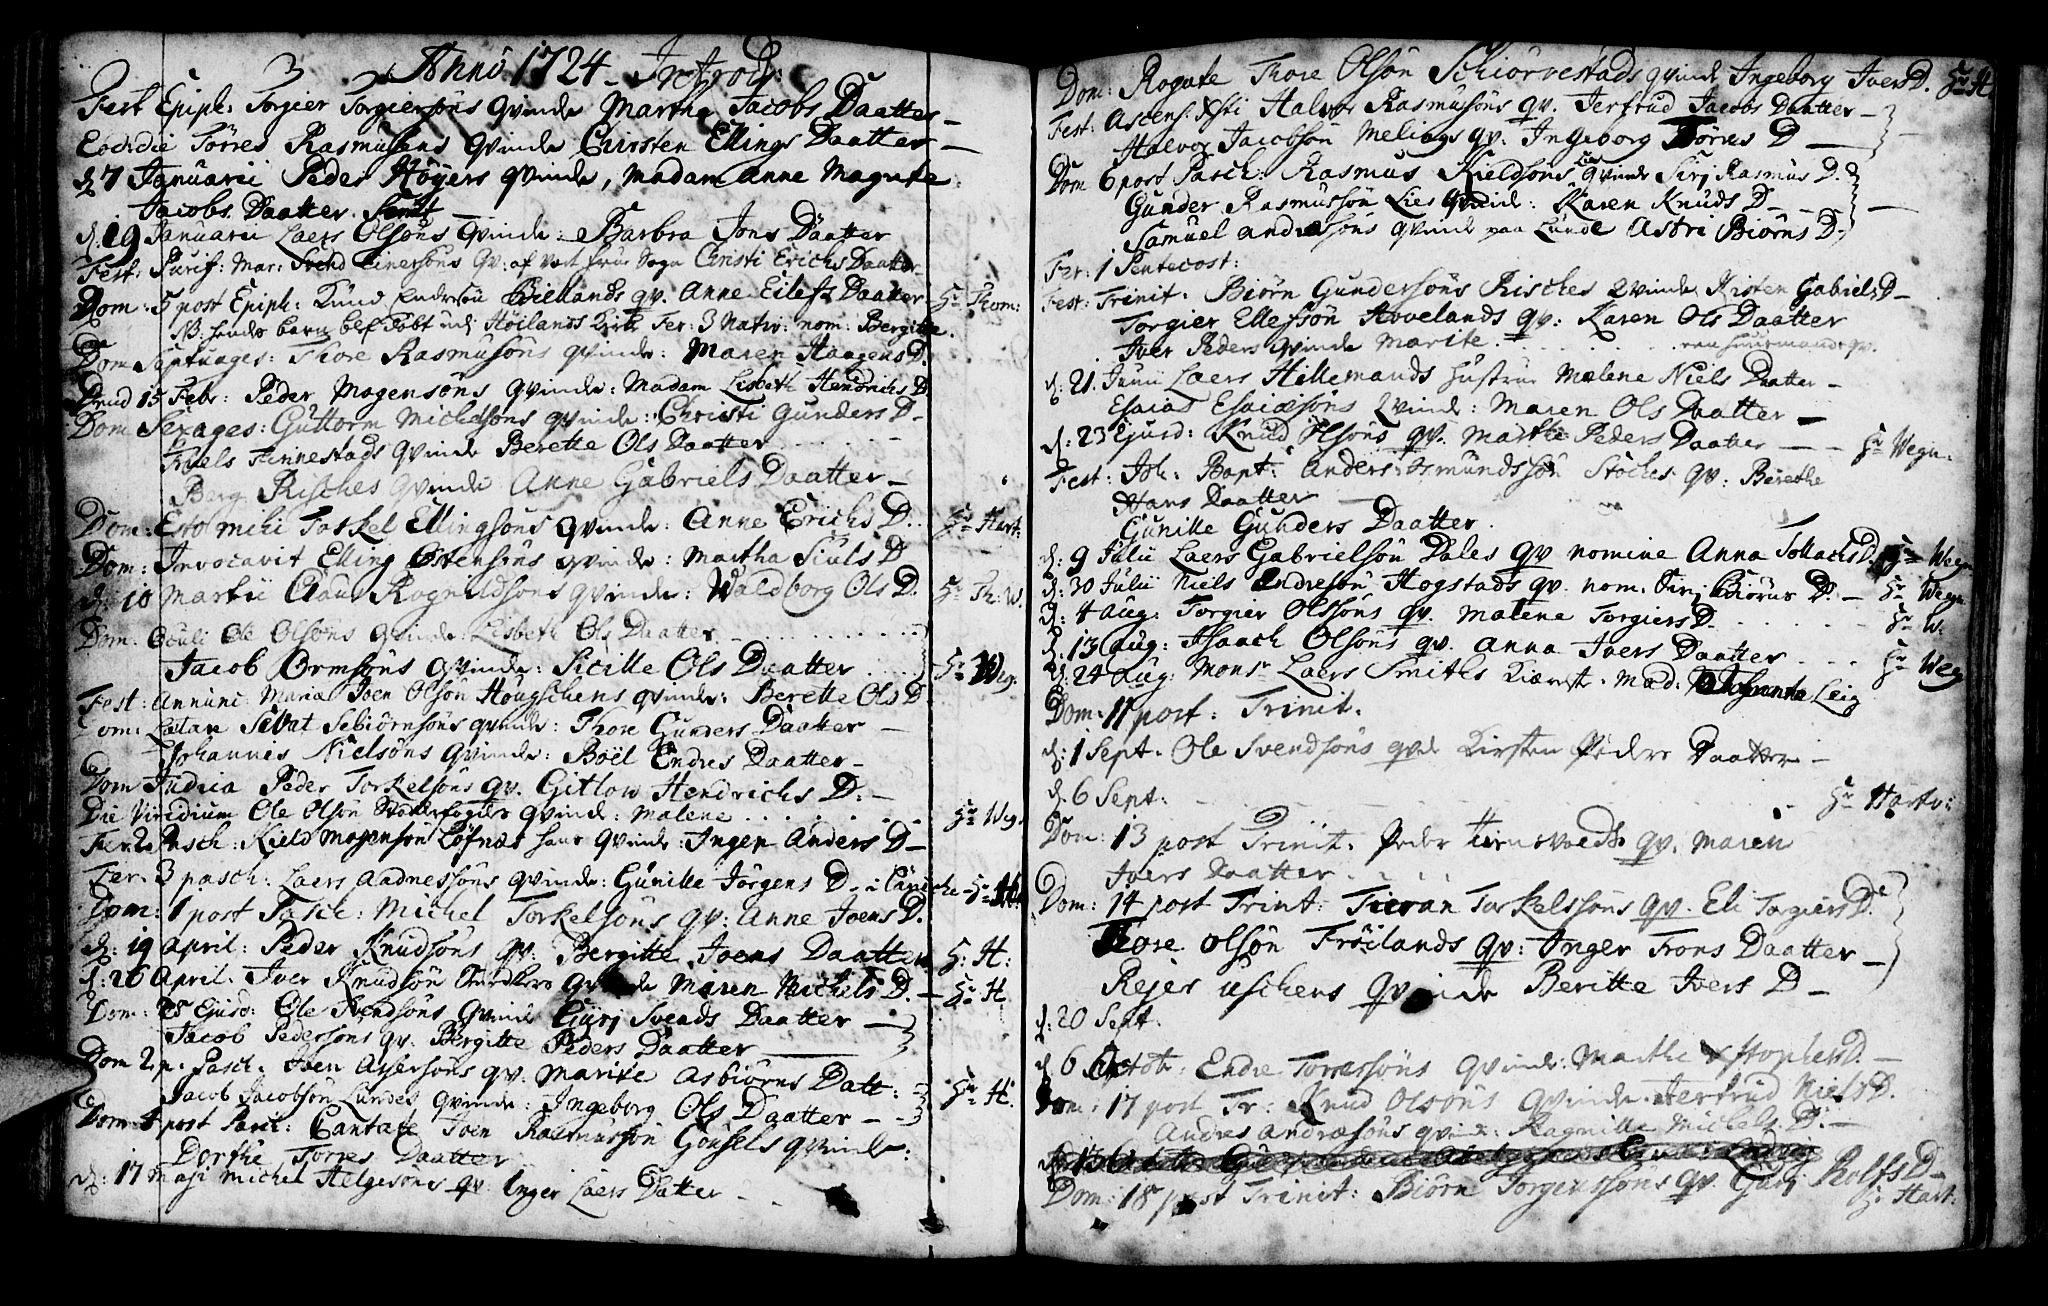 3 Anno 1724 Introd:
Fest Epiph: Torgier Torgiersøns qvinde Martha Jacobs Daatter
Eod: die Tørres Rasmusøns qvinde Chirsten Ellings Daatter
d: 7 Januarii Peder Høyers qvinde, Madam Anne Magrete
Jacobs Daatter
d: 19 Januarii Laers Olsøns qvinde: Barbra Jons Daatter
Fest: Purif: Mar: Svend Einersøns qv: af Sogn Christi Erichs Daatter
Dom: 5 post Epiph: Knud Endresøn Biellands qv. Anne Eilefs Daatter Hr Thom:
NB hendes barn blef døbt udi Høilands Kirke Fer: 3 Nativ: nom: Bergitte
Dom Septuages: Thore Rasmusøns qvinde: Maren Haagens D.
15 Febr: Peder Mogensøns qvinde: Madam Lisbeth Hendrichs D.
Dom Sexages: Guttorm Michelsøns qvinde: Christi Gunders D
Niels Finnestads qvinde Berette Ols Daatter
Berg Risches qvinde Anne Gabriels Daatter
Dom: Esto mihi Torkel Ellingsøns qvinde: Anne Erichs D. Hr Hart:
Dom: Invocavit Elling Østensøns qvinde: Martha Siuls D
d: 10 Martii Clau Rognildsøns qvinde: Waldborg Ols D. Hr Th: W.
Dom: Oculi Ole Olsøns qvinde: Lisbeth Ols Daatter
Jacob Ormsøns qvinde: Sicille Ols Daatter Hr Weg:
Fest: Annunc Mariæ Joen Olsøn Hougschens qvinde: Berette Ols D
Dom: Lætare Sivat Sebiørnsøns qvinde: Thore Gunders Daatter
Johannis Nielsøns qvinde: Boël Endres Daatter
Dom Judica Peder Torkelsøns qv. Gitlow Hendrichs D:
Die Viridium Ole Olsøn qvinde: Malene Hr Weg.
Fer: 2 Pasch: Kield Mogensøn Løfnæs hans qvinde: Inger Anders D
Fer: 3 pasch: Laers Aadnessøns qvinde: Gunille Jørgens D Hr H
Dom: 1 post Pasch: Michel Torkelsøns qv: Anne Joens D.
d: 19 April: Peder Knudsøns qv: Bergitte Joens Daatter H: H:
d: 26 April: Iver Knudsøn qvinde Maren Michels D. Hr H
Dom: Ejusd: Ole Svendsøns qvinde Gurj Svends Daatter
Jacob Pedersøns qv. Bergitte Peders Daatter
Dom 2 p. Pasch. Joen Assersøns qv: Marite Asbiørns Datt:
Jacob Jacobsøn Lundes qvinde: Ingeborg Ols Daatter Hr H.
Dom 4 post Pasc: Cantate Joen Rasmussøn Gousels qvinde:
Dorthe Torres Daatter
d: 17 Maji Michel Helgesøns qv: Inger Laers Datter
Dom: Rogate Thore Olsøn Schiørvestads qvinde Ingeborg Ivers D. Hr H
Fest: Ascens: Xsti Halvor Rasmussøns qv. Jertrud Jacobs Daatter
Halvor Jacobsøn Melings qv. Ingeborg Tørres D
Dom 6 post Pasch: Rasmus Kieldsøns Lies qvinde Sirj Rasmus D.
Gunder Rasmussøn Lies qvind: Karen Knuds D
Samuel Andræsøns qvinde paa Lunde Astri Biørns D.
Fer: 1 Pentecost:
Fest: Trinit. Biørn Gundersøns Risches qvinde Kisten Gabriels D
Torgier Ellefsøn Hovelands qv: Karen Ols Daatter
Iver Peders qvinde Marite.
d: 21 Junii Laers Hillemands Hustrue Malene Niels Daatter
Esaias Esaiæsøns qvinde: Maren Ols Daatter
d: 23 Ejusd: Knud Olsøns qv. Marthe Peders Daatter Hr Wegn.
Fest: Joh: Bapt: Anders Osmundssøn Stoches qv: Berethe
Hans Daatter
Gunille Gunders Daatter.
d: 9 Julii Laers Gabrielsøn Dales qv nomine Anna Tollachs D. Hr Wegn
d: 30 Julii Niels Endresøn Hogstads qv. nom. Sirj Biørns D. Hr Wegn
d: 4 Aug: Torgier Olsøns qv. Malene Torgiers D. Hr W.
d: 13 Aug: Isaach Olsøns qv. Anna Ivers Daatter Hr Weg
d: 24 Aug: Monsr Laers Smiths Kiæreste Mad: Leig
Dom: 11 post: Trinit.
d: 1 Sept. Ole Svendsøns qvd Kirsten Peders Daatter
d. 6 Sept: Hr Hartv:
Dom: 13 post Trinit. Peder qv. Maren
Ivers Daatter
Dom: 14 post Trint: Torkelssøns qv. Eli Torgiers D.
Thore Olsøn Frøilands qv: Inger Trons Daatter
Rejer uschens qvinde Beritte Ivers D
d: 20 Sept.
d 6 Octob: Endre Torressøns qvinde: Marthe Xstophers D.
Dom: 17 post Tr: Knud Olsøns qvinde Jertrud Niels D.
Andres Andræsøns qvind: Ragnille Michels D:
Dom: 18 post Trinit: Biørn Jørgenssøns qv. Gurj Rolfs D
Hr Hart: